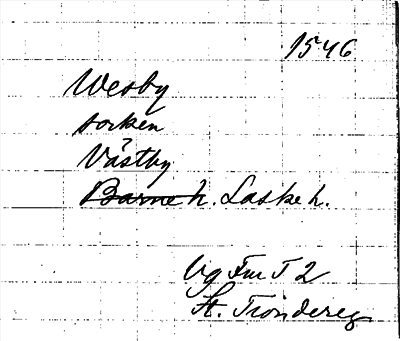 1546
Wesby
socken
Västby
Barne h. Laske h.
Vg Fm T 2
St. Tiondereg